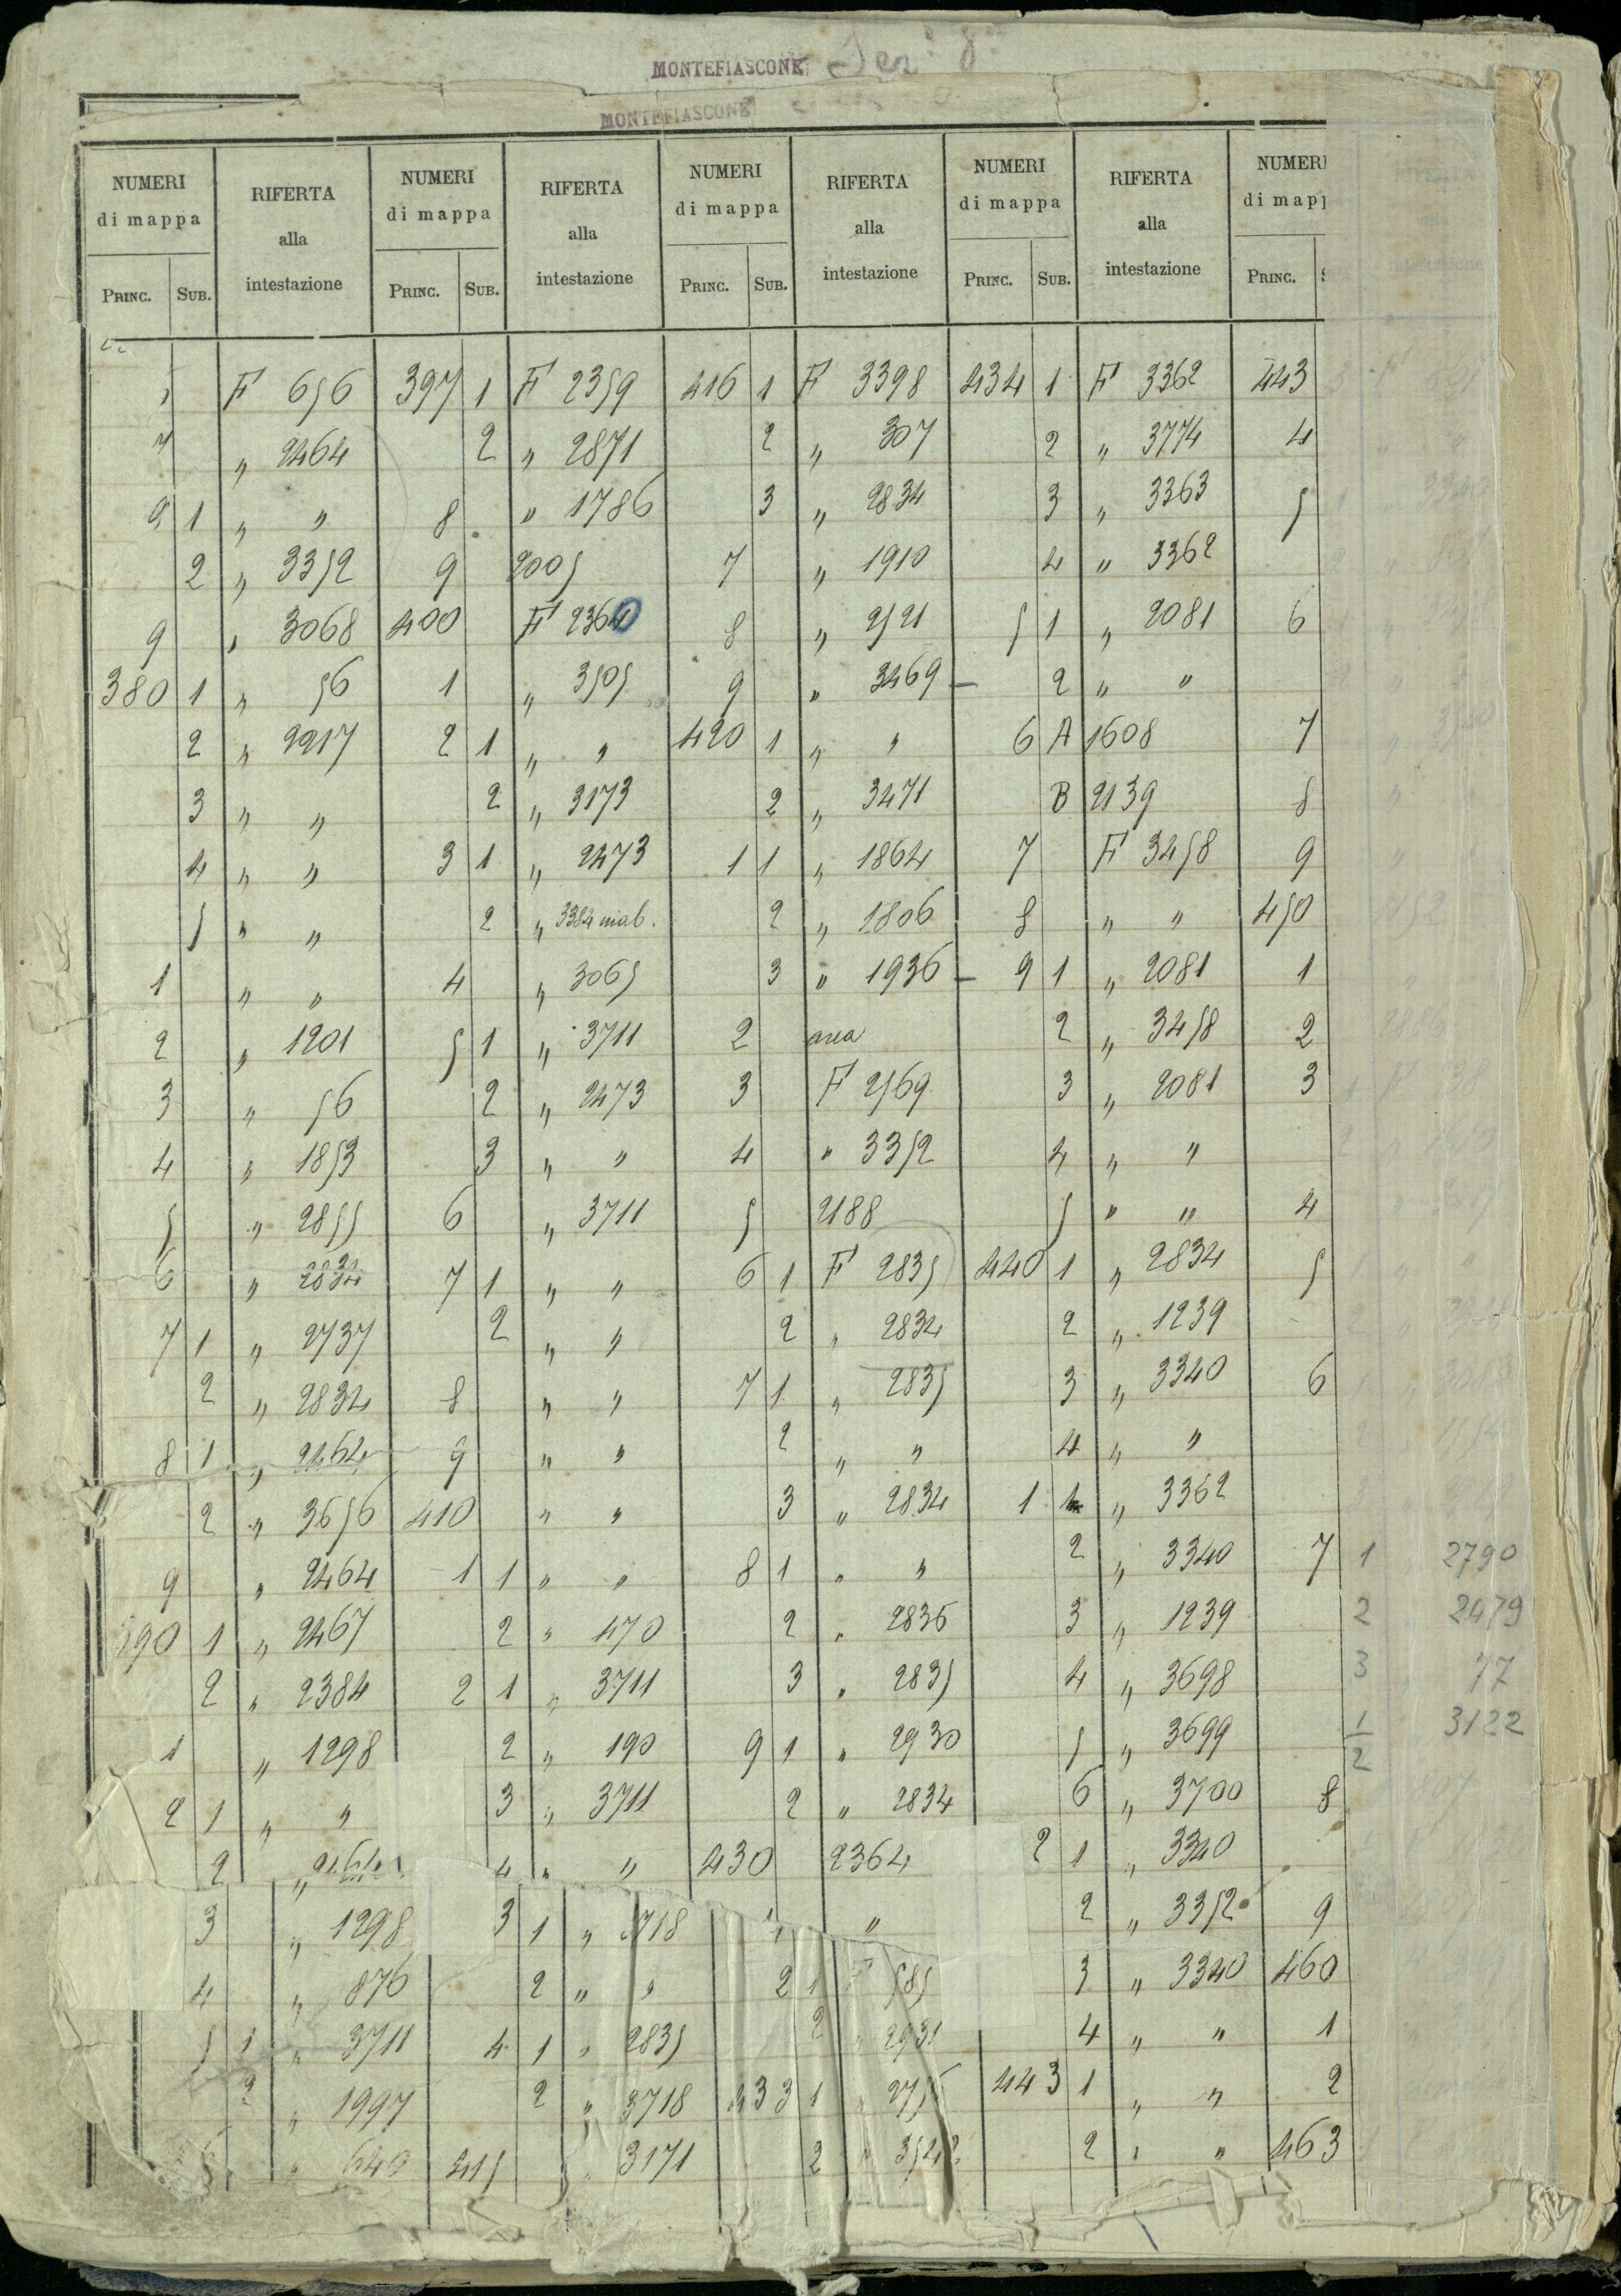 MONTEFIASCONE Sez. 8
MONTEFIASCONE
NUMERI di mappa RIFERTA alla intestazione NUMERI di mappa RIFERTA alla intestazione NUMERI di mappa RIFERTA alla intestazione NUMERI di mappa RIFERTA alla intestazione NUMERI di mapp
PRINC. SUB. PRINC. SUB. PRINC. SUB. PRINC. SUB. PRINC.
F 656 397 1 F 2359 416 1 F 3398 434 1 F 3362 443
7 " 2464 2 " 2871 2 " 307 2 " 3774 4
1 " " 8 " 1786 3 " 2834 3 " 3363 5
2 " 3352 9 2005 7 " 1910 4 " 3362
9 " 3068 400 F 2360 8 " 2521 5 1 " 2081 6
380 1 " 56 1 " 3505 9 " 3469 — 2 " "
2 " 2217 2 1 " " 420 1 " " 6 A 1608 7
3 " " 2 " 3173 2 " 3471 B 2139 8
4 " " 3 1 " 2473 1 1 " 1864 7 F 3458 9
5 " " 2 " 3384 2 " 1806 8 " " 450
1 " " 4 " 3065 3 " 1936 — 9 1 " 2081 1
2 " 1201 5 1 " 3711 2 area 2 " 3458 2
3 " 56 2 " 2473 3 F 2569 3 " 2081 3
4 " 1853 3 " " 4 " 3352 4 " "
5 " 2855 6 " 3711 5 2188 5 " " 4
6 " 7 1 " " 6 1 F 2835 440 1 " 2834 5
7 1 " 2737 2 " " 2 " 2834 2 " 1239
2 " 2834 8 " " 7 1 " 2835 3 " 3340 6
8 1 " 2464 9 " " 2 " " 4 " "
2 " 3656 410 " " 3 " 2834 1 1 " 3362
9 " 2464 1 1 " " 8 1 " " 2 " 3340 7 1 2790
390 1 " 2467 2 " 470 2 " 2836 3 " 1239 2 2479
2 " 2384 2 1 " 3711 3 " 2835 4 " 3698 3 77
1 " 1298 2 " 190 9 1 " 2930 5 " 3699 1/2 3122
2 1 " " 3 " 3711 2 " 2834 6 " 3700 8
2 " 4 " " 430 2364 2 1 " 3340
3 " 1298 3 1 " 3718 " 2 " 3352 9
4 " 876 2 " " 2 1 3 " 3340 460
5 1 " 3711 4 1 " 2835 2 " 2931 4 " " 1
2 " 1997 2 " 3718 433 1 " 443 1 " " 2
" 640 415 " 3171 2 " 2 " " 463